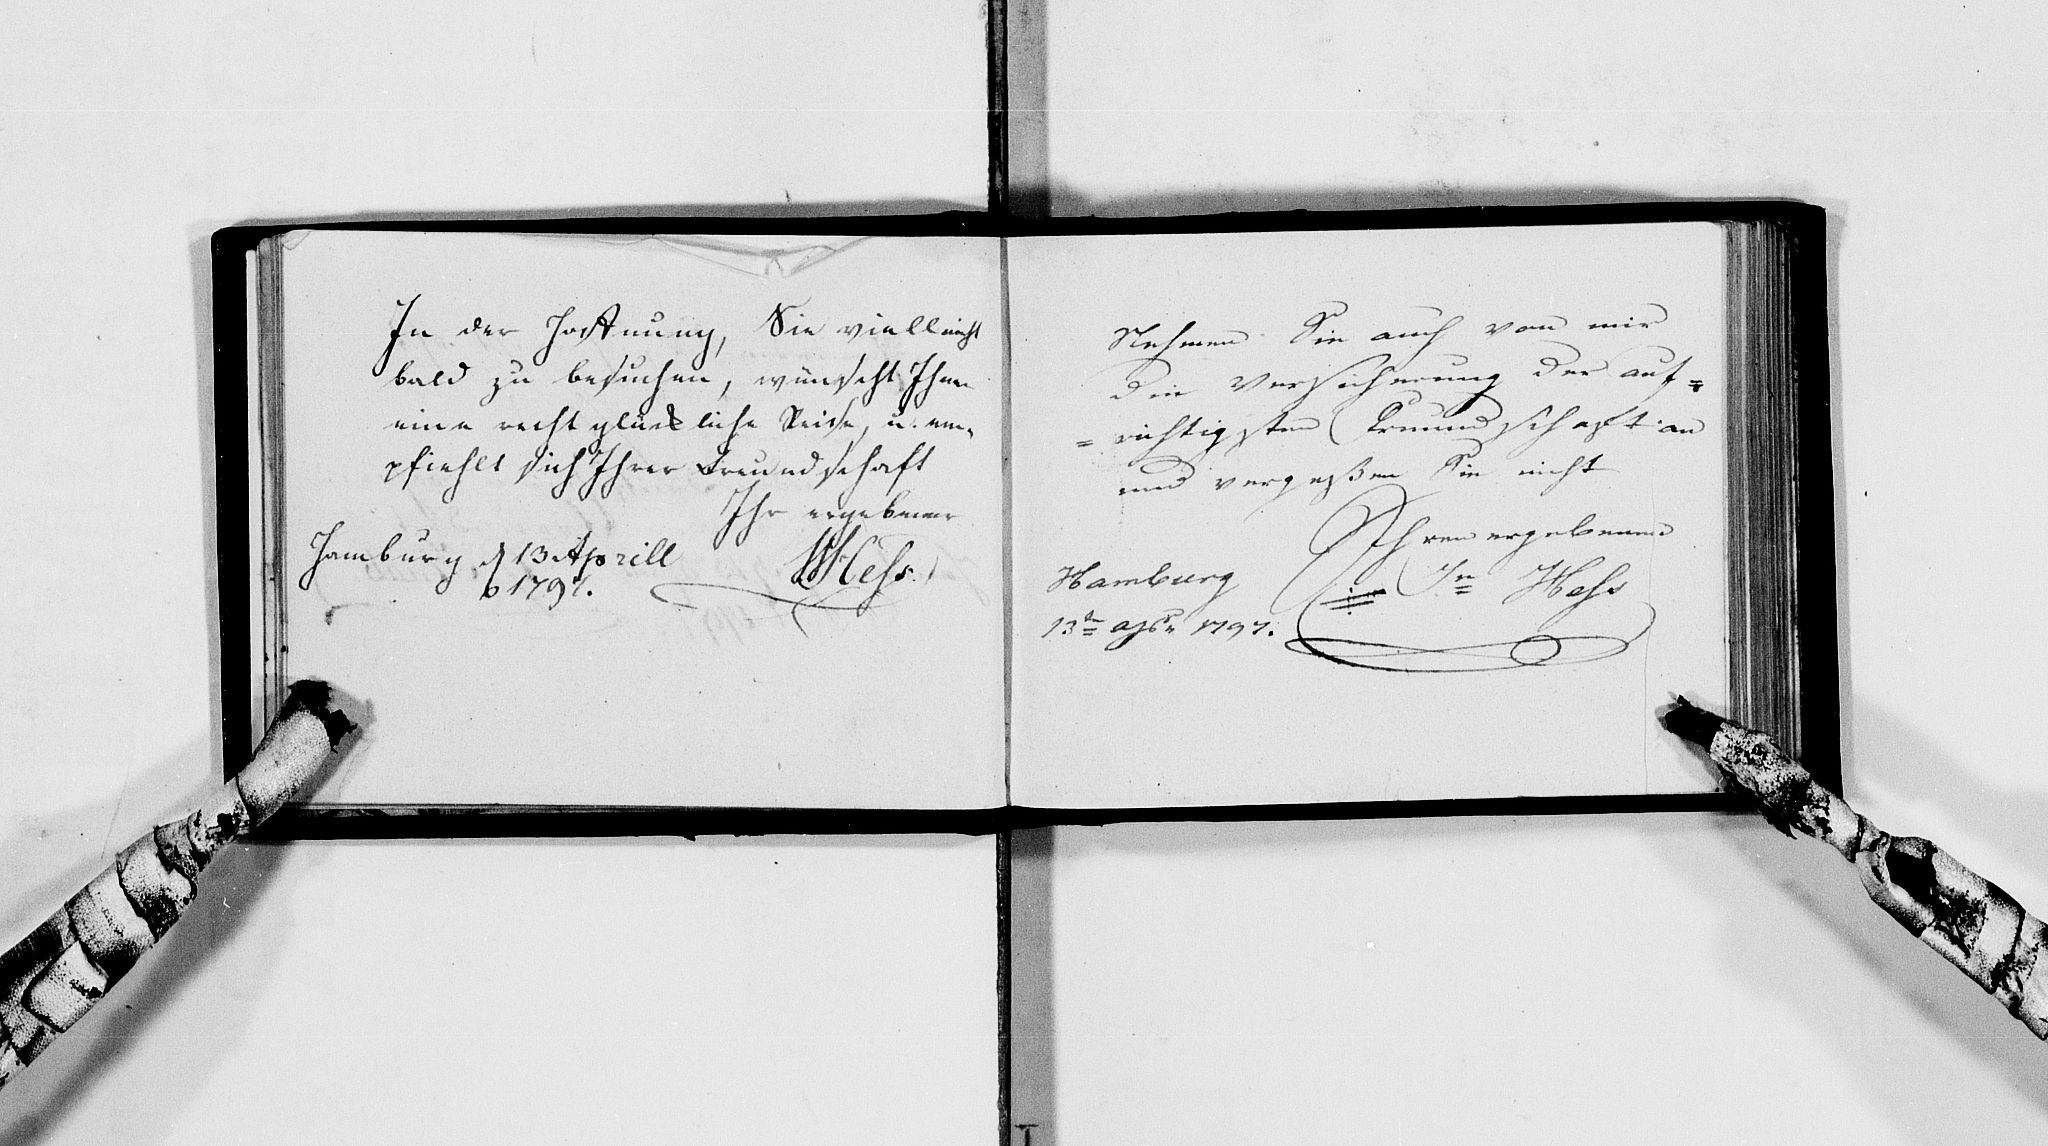 In der Hoffnung, Sie vielleicht
bald zu besuchen, wünscht Ihnen
eine recht glückliche Reise, u. em-
pfiehlt sich Ihrer Freundschaft
Ihr ergebener
Hamburg d 13 Aprill
1797.
Hess.
Nehmen Sie auch von mir
die Versicherung der auf=
=richtigsten Freundschaft an
und vergeßen Sie nicht
Ihren ergebenen
Hamburg
Hess
13te 1797.